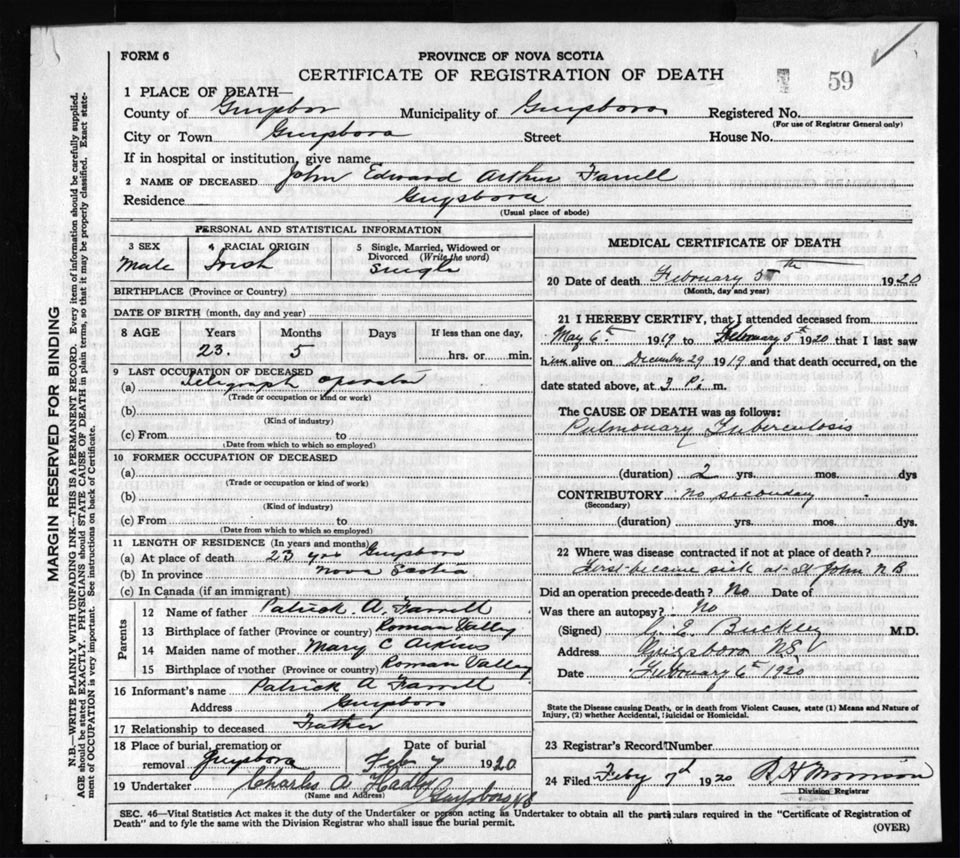 FORM 6
PROVINCE OF NOVA SCOTIA
CERTIFICATE OF REGISTRATION OF DEATH
59
1 PLACE OF DEATH—
County of Guysboro Municipality of Guysboro Registered No.
(For use of Registrar General only)
City or Town Guysboro Street House No.
If in hospital or institution, give name
2 NAME OF DECEASED John Edward Arthur Farrell
Residence Guysboro
(Usual place of abode)
PERSONAL AND STATISTICAL INFORMATION
3 SEX 4 RACIAL ORIGIN 5 Single, Married, Widowed or Divorced (Write the word)
Male Irish Single
BIRTHPLACE (Province or Country)
DATE OF BIRTH (month, day and year)
8 AGE Years Months Days If less than one day,
23. 5 hrs. or min.
9 LAST OCCUPATION OF DECEASED
(a) Telegraph operator
(Trade or occupation or kind or work)
(b)
(Kind of industry)
(c) From to
(Date from which to which so employed)
10 FORMER OCCUPATION OF DECEASED
(a)
(Trade or occupation or kind of work)
(b)
(Kind of industry)
(c) From to
(Date from which to which so employed)
11 LENGTH OF RESIDENCE (In years and months)
(a) At place of death 23 yrs Guysboro
(b) In province Nova Scotia
(c) In Canada (if an immigrant)
Parents
12 Name of father Patrick A. Farrell
13 Birthplace of father (Province or country) Roman Valley
14 Maiden name of mother Mary C
15 Birthplace of mother (Province or country) Roman Valley
16 Informant's name Patrick A Farrell
Address Guysboro
17 Relationship to deceased Father
18 Place of burial, cremation or removal Guysboro Date of burial Feb 7 1920
19 Undertaker Charles A Hadley
(Name and Address) Guysboro NS
MEDICAL CERTIFICATE OF DEATH
20 Date of death February 5th 1920
(Month, day and year)
21 I HEREBY CERTIFY, that I attended deceased from
May 6th 1919 to February 5th 1920 that I last saw
him alive on December 29 1919 and that death occurred, on the
date stated above, at 3 P. m.
The CAUSE OF DEATH was as follows:
Pulmonary Tuberculosis
(duration) 2 yrs. mos. dys
CONTRIBUTORY no secondary
(Secondary)
(duration) yrs. mos. dys.
22 Where was disease contracted if not at place of death?
First became sick at St John NB
Did an operation precede death? No Date of
Was there an autopsy? No
(Signed) G. E. Buckley M.D.
Address Guysboro N.S.
Date February 6th 1920
State the Disease causing Death, or in death from Violent Causes, state (1) Means and Nature of
Injury, (2) whether Accidental, Suicidal or Homicidal.
23 Registrar's Record Number
24 Filed Feby 7th 1920 Morrison
Division Registrar
SEC. 46—Vital Statistics Act makes it the duty of the Undertaker or person acting as Undertaker to obtain all the particulars required in the "Certificate of Registration of
Death" and to fyle the same with the Division Registrar who shall issue the burial permit.
(OVER)
MARGIN RESERVED FOR BINDING
N.B.—WRITE PLAINLY WITH UNFADING INK—THIS IS A PERMANENT RECORD. Every item of information should be carefully supplied.
AGE should be stated EXACTLY. PHYSICIANS should STATE CAUSE OF DEATH in plain terms, so that it may be properly classified. Exact state-
ment of OCCUPATION is very important. See instructions on back of Certificate.